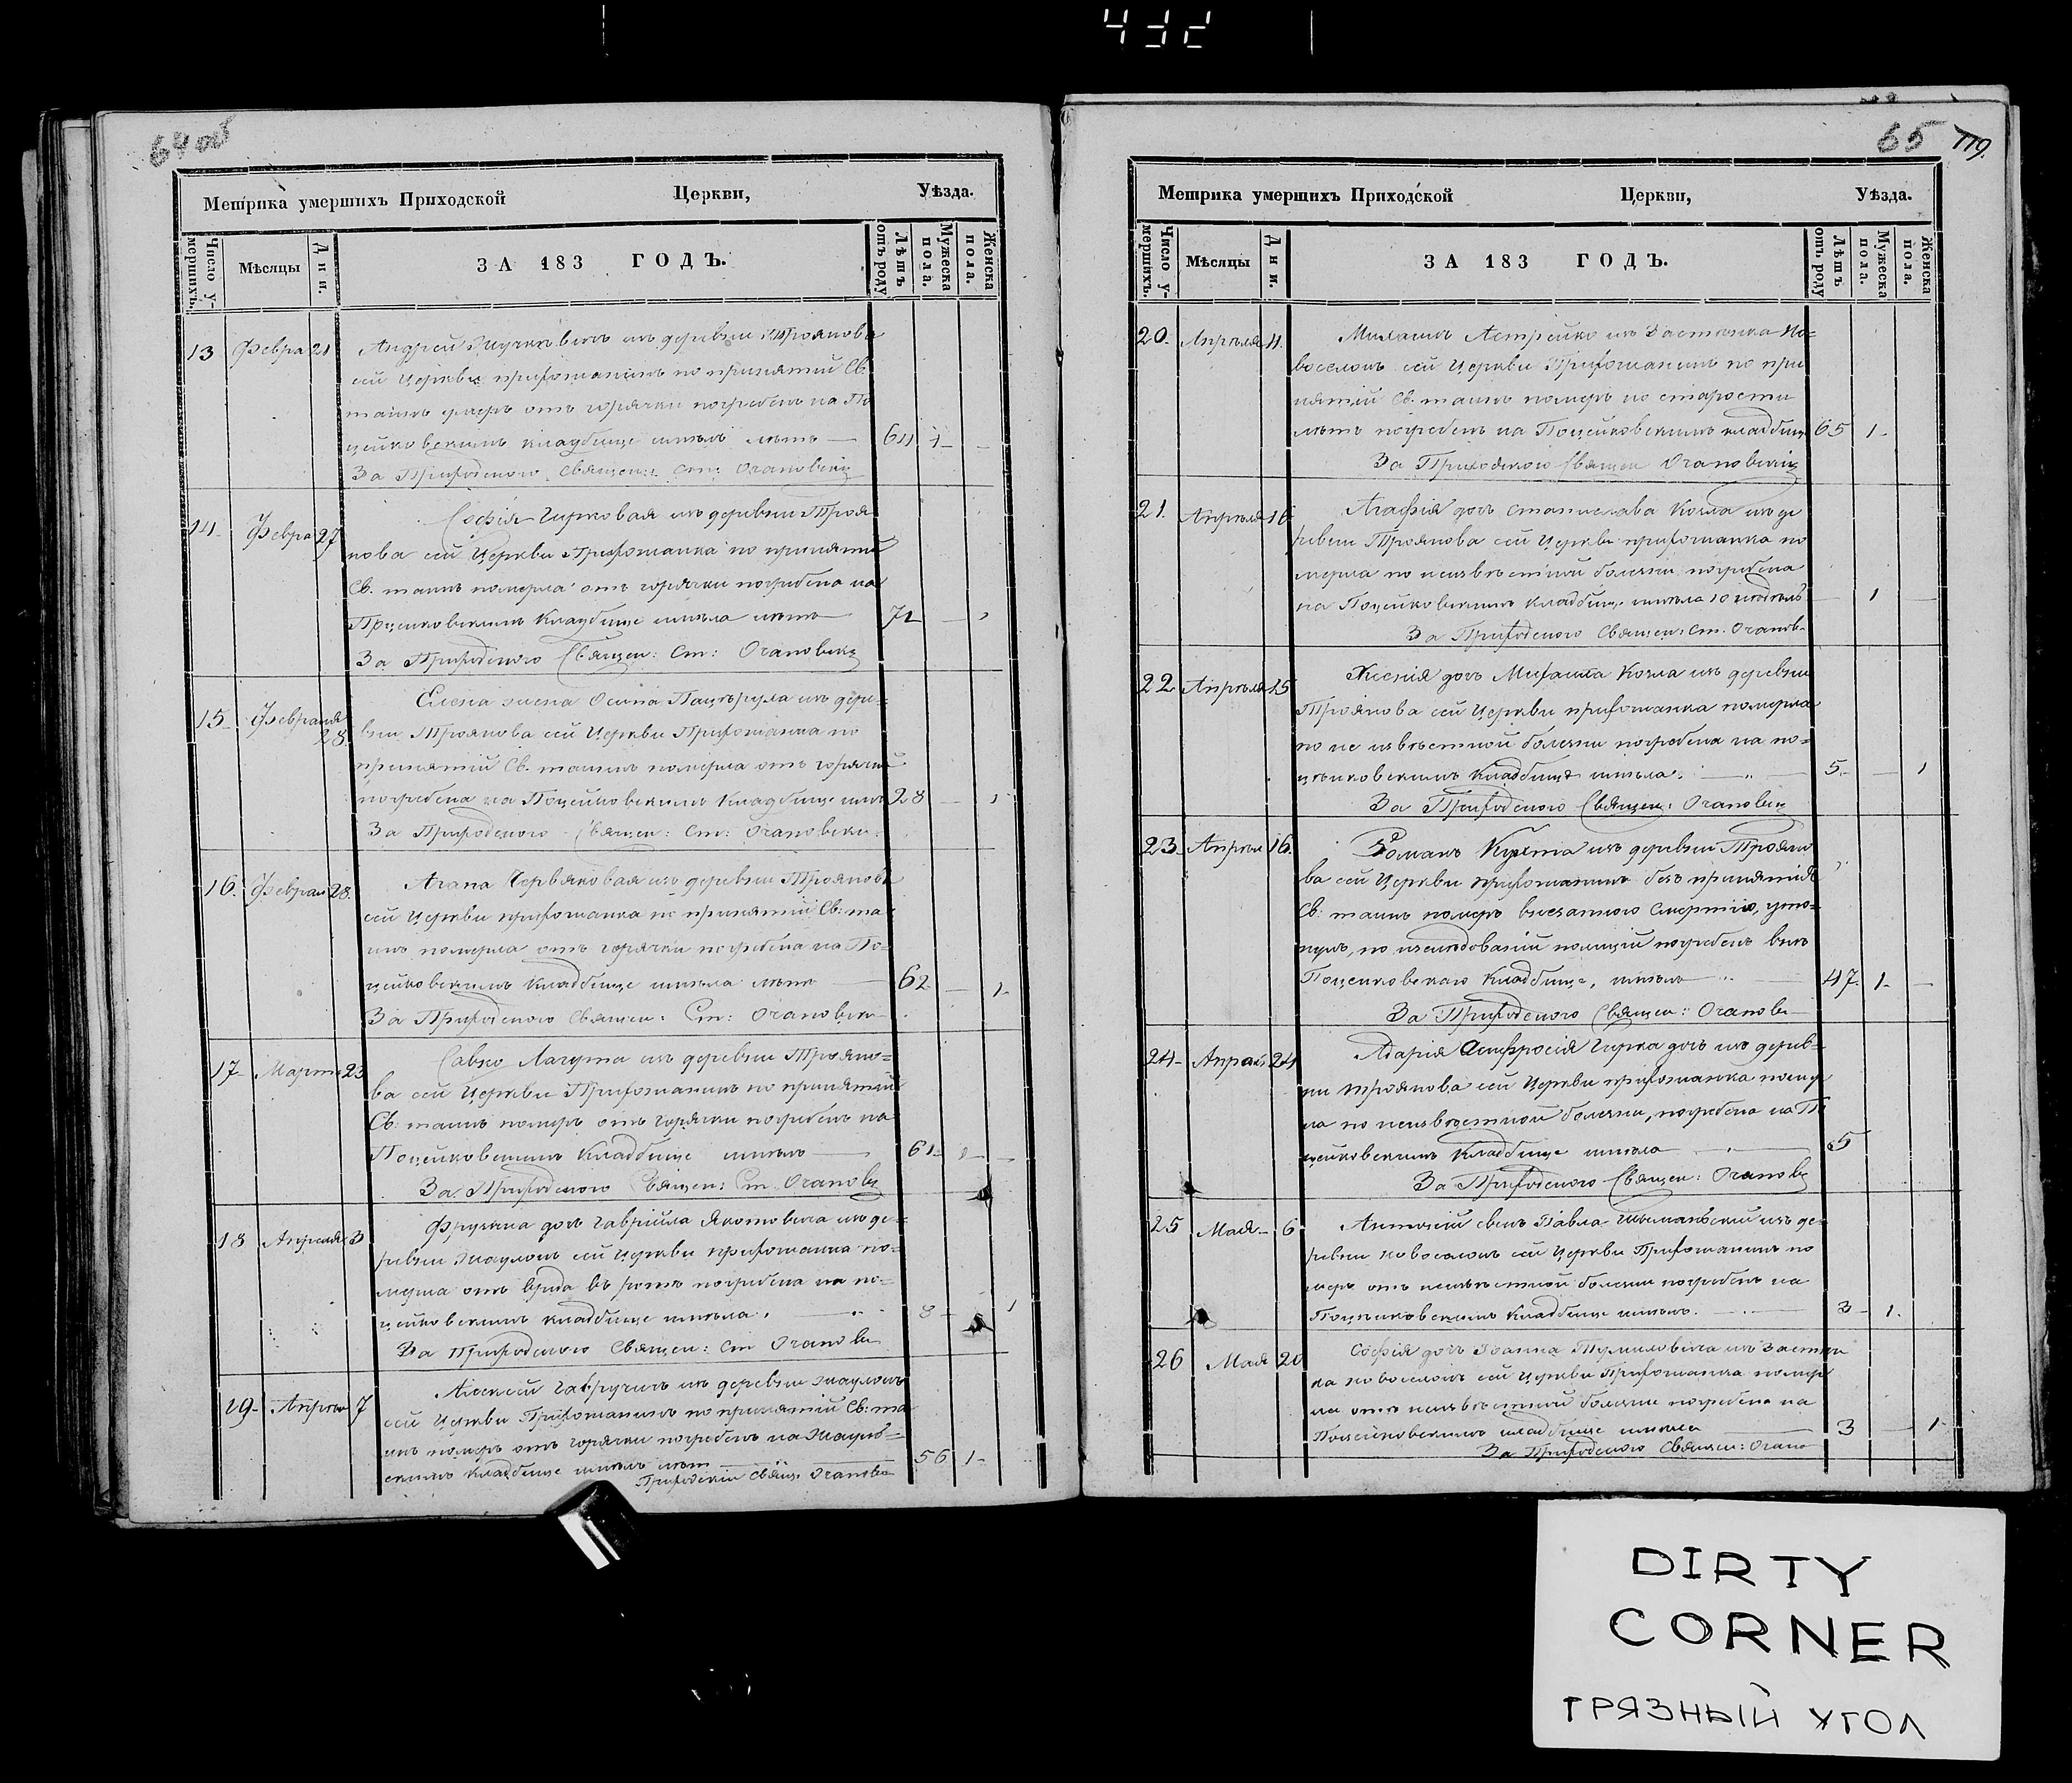 432
64 об
Метрика умершихъ Приходской Церкви, Уѣзда.
Число умершихъ. Мѣсяцы Дни. ЗА 183 ГОДЪ. Лѣтъ отъ роду Мужеска пола. Женска пола.
13 Февра 21 Андрей из деревни Троянова
сей Церкви прихожанинъ по принятіи Св.
таинъ умеръ отъ горячки погребенъ на По
цейковскимъ кладбище имѣлъ лѣтъ 64 1
За Приходского Священ: Ст: Огановскій
14 Февра 27 Софія Гирковая изъ деревни Троя
нова сей Церкви Прихожанка по принятіи
Св. таинъ померла отъ горячки погребена на
Поцейковскимъ Кладбище имѣла лѣтъ 72
За Приходского Священ: Ст: Огановскій
15 Февраля 28 Елена жена Осипа изъ дере-
вни Троянова сей Церкви Прихожанка по
принятіи Св. таинъ померла отъ горячки
погребена на Поцейковскимъ Кладбище имѣ 28 1
За Приходского Священ: Ст: Огановски
16. Феврал 28. Агапа Червяковая изъ деревни Троянова
сей Церкви прихожанка по принятіи Св: та
инъ померла отъ горячки погребена на По-
цейковскимъ Кладбище имѣла лѣтъ 62 1
За Приходского Священ: Ст: Огановски
17 Март 23 Савко Лагута изъ деревни Трояно-
ва сей Церкви Прихожанинъ по принятіи
Св: таинъ померъ отъ горячки погребенъ на
Поцейковскимъ Кладбище имѣлъ 61
За Приходского Священ: Ст. Огановс
18 Апреля 3 дочь Гавріила изъ де-
ревни сей Церкви прихожанка по-
мерла отъ въ ротѣ погребена на по-
цейковскимъ кладбище имѣла. 8 1
За Приходского Священ: Ст Огановс
19 Апрѣл 7 Алексей Гавручикъ изъ деревни
сей Церкви Прихожанинъ по принятіи Св: та
инъ померъ отъ горячки погребенъ на
скимъ Кладбище имѣлъ лѣтъ 56 1
Приходскій Свящ Огановс
65 119.
Метрика умершихъ Приходской Церкви, Уѣзда.
Число умершихъ. Мѣсяцы Дни. ЗА 183 ГОДЪ. Лѣтъ отъ роду Мужеска пола. Женска пола.
20. Апрѣля 11. Михаилъ Астрейко изъ Застѣнка Но-
воселокъ сей Церкви Прихожанинъ по при
нятіи Св. таинъ померъ по старости
лѣтъ погребенъ на Поцейковскимъ кладбищ 65 1
За Приходского Священ Огановскій
21. Апрѣля 16 Агафія дочь Станислава Козла изъ де
ревни Троянова сей Церкви прихожанка по
мерла по неизвѣстной болезни погребена
на Поцейковскимъ Кладбище имѣла 10 недѣль 1
За Приходского Священ: Ст. Оганов
22 Апрѣля 15 Ксенія дочь Михаила Козла изъ деревни
Троянова сей Церкви прихожанка померла
по не извѣстной болезни погребена на по-
цейковскимъ Кладбище имѣла. 5. 1
За Приходского Священ: Огановск
23. Апрѣл 16. Романъ Кухта изъ деревни Трояно
ва сей Церкви прихожанинъ безъ принятія
Св: таинъ померъ внезапного смертію, уто-
нулъ, по изследованіи полиціи погребенъ внѣ
Поцейковскаго Кладбище, имѣлъ 47. 1
За Приходского Священ: Огановс
24 Апрѣл 24 Гирка дочь изъ дерев-
ни Троянова сей Церкви прихожанка помер
ла по неизвѣстной болезни, погребена на По
цейковскимъ Кладбище имѣла 5
За Приходского Священ: Огановс
25 Мая 6 Антоній сынъ Павла изъ де-
ревни Новоселокъ сей Церкви Прихожанинъ по
меръ отъ неизвѣстной болезни погребенъ на
Поцейковскимъ Кладбище имѣлъ. 3 1.
26 Мая 20 Софія дочь Іоанна Тумиловича изъ Застѣн
ка Новоселокъ сей Церкви Прихожанка помер
ла отъ неизвѣстной болезни погребена на
Поцейковскимъ кладбище имѣла 3 1
За Приходского Священ: Огано
DIRTY
CORNER
ГРЯЗНЫЙ УГОЛ